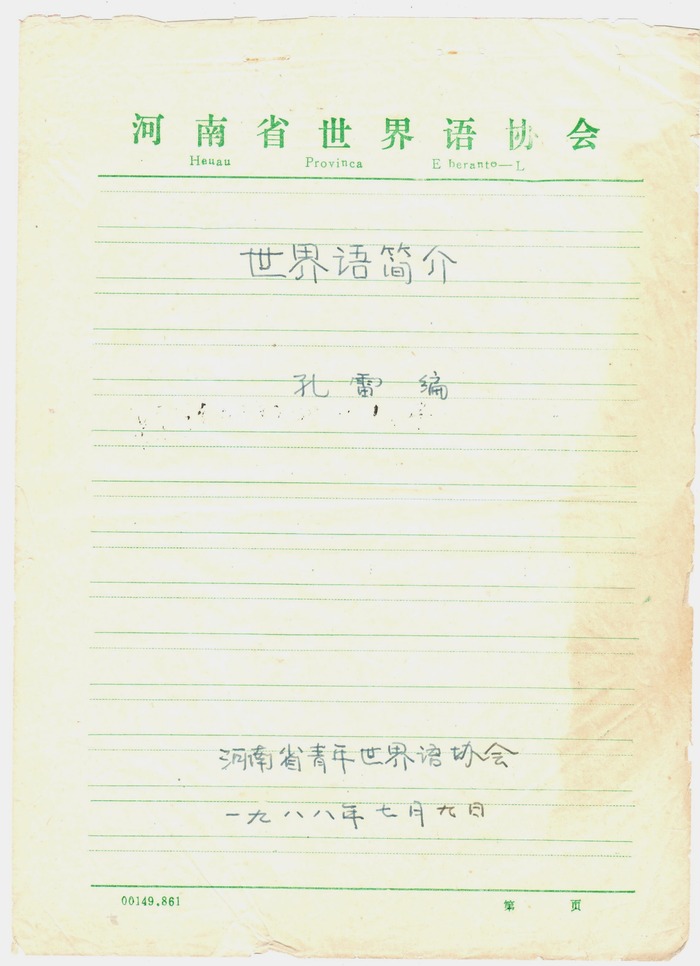 河南省世界语协会
Henau Provinca E beranto—L
世界语简介
孔雷 编
河南省青年世界语协会
一九八八年七月九日
00149.861 第 页